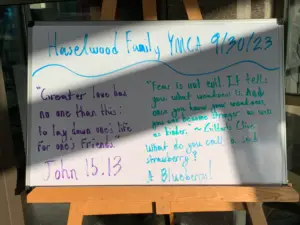 Haselwood Family YMCA 9/30/23
"Greater love has
no one than this:
to lay down one's life
for one's friends."
John 15.13
"Fear is not evil. It tells
you what weakness is. And
once you know your weakness,
you can become stronger as well
as kinder." ~
What do you call a sad
strawberry?
A Blueberry!